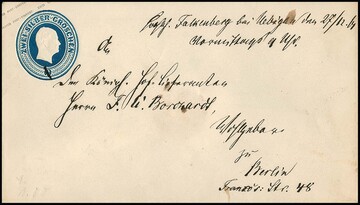 ZWEI SILBER-GROSCHEN
Falkenberg bei den 27/11
Vormittags 9 Uhr.
An
Den Königl. Hof-Lieferanten
Herrn F. W. Borchardt,
Wohlgeboren
zu
Berlin
Französ: Str. 48